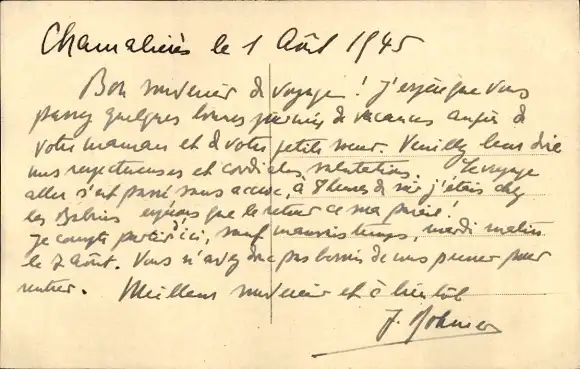 Chamalières le 1 Août 1945
Bon souvenir de voyage ! J'espère que vous
passez quelques bonnes journées de vacances auprès de
votre maman et de votre petite sœur. Veuillez leur dire
mes respectueuses et cordiales salutations. Le voyage
aller s'est passé sans accroc, à 8 heures du soir j'étais chez
les espérons que le retour ce sera pareil !
Je compte partir d'ici, sauf mauvais temps, mardi matin
le 7 Août. Vous n'avez donc pas besoin de vous presser pour
rentrer. Meilleur souvenir et à bientôt
J.